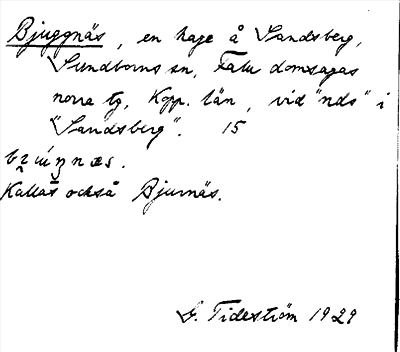 Bjuggnäs, en hage å Sandsberg,
Sundborns sn, Falu domsagas
norra tg, Kopp. län, vid "nds" i
"Sandsberg". 15
Kallas också Bjurnäs.
G. Tideström 1929